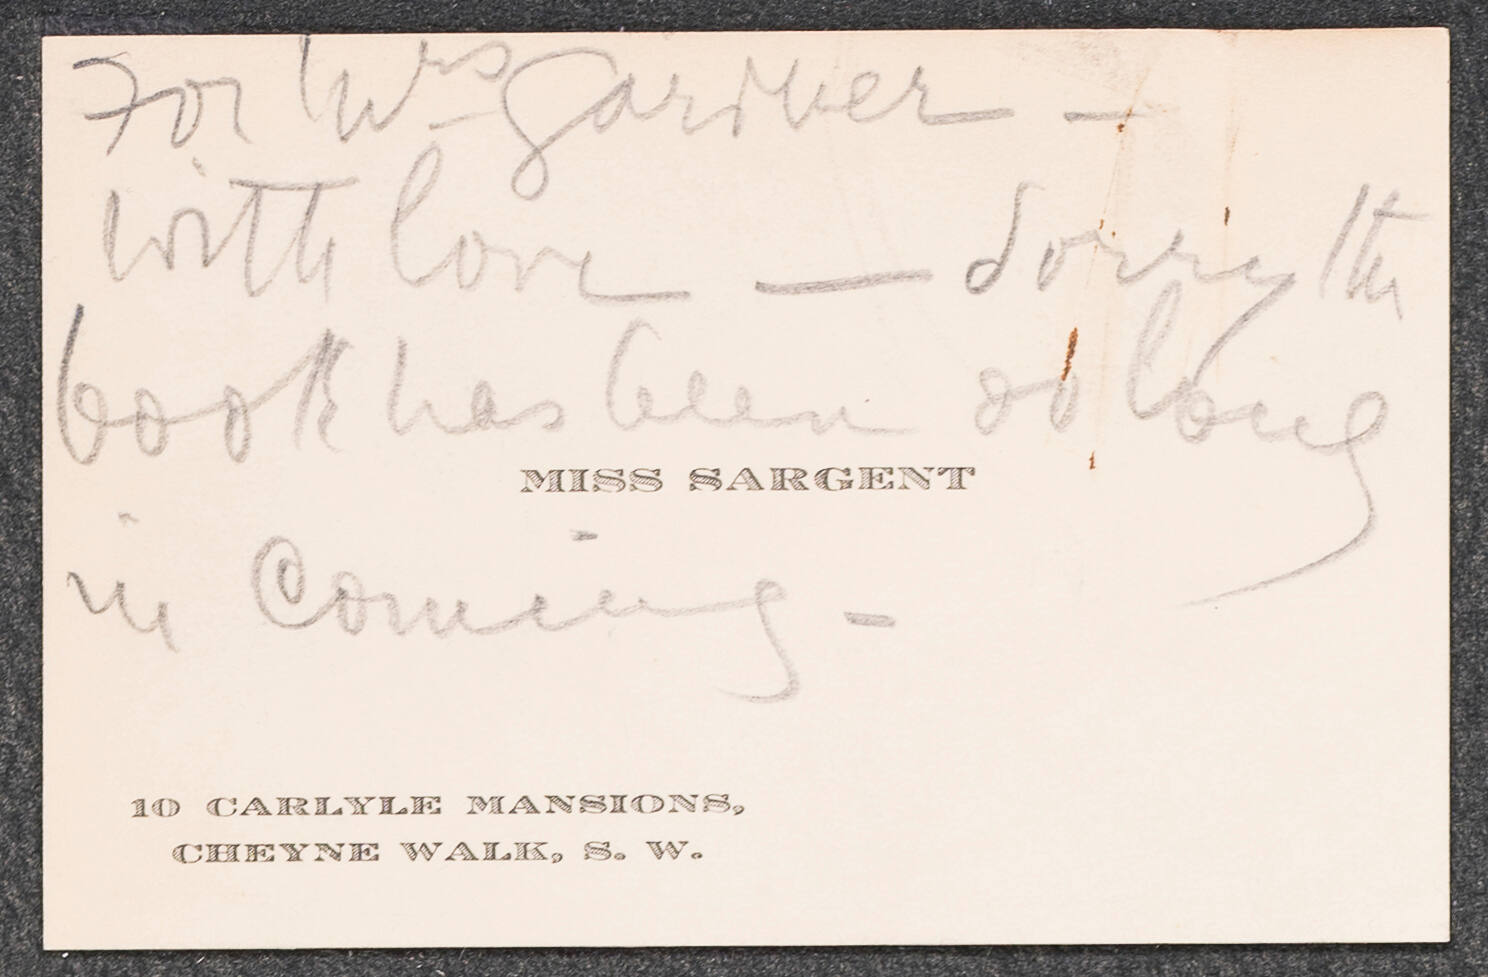 For Mrs Gardner —
with love — Sorry the
book has been so long
MISS SARGENT
in coming -
10 CARLYLE MANSIONS,
CHEYNE WALK, S. W.